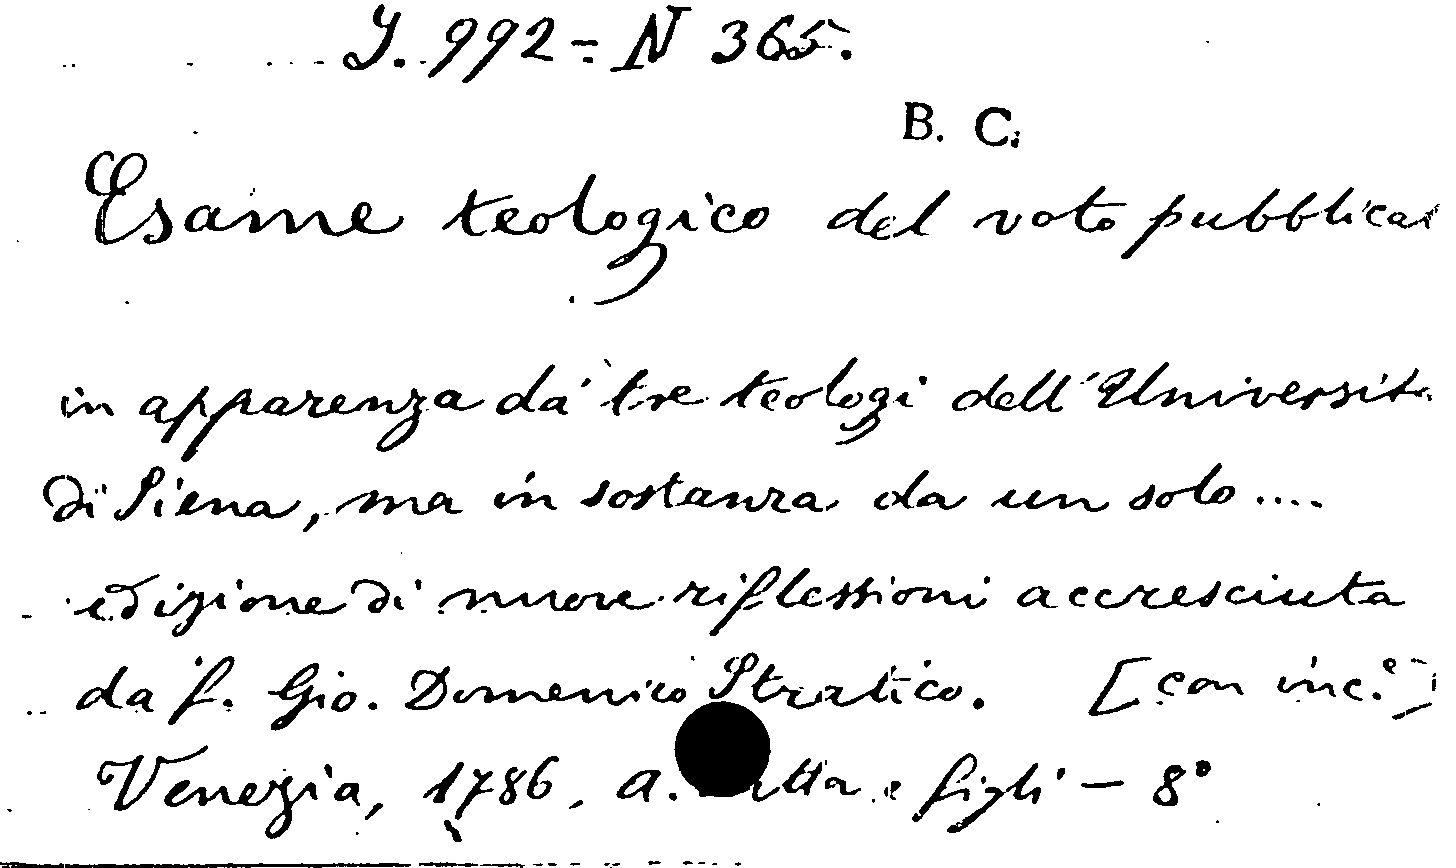 I. 992 = N 365.
B. C.
Esame teologico del voto pubblicat
in apparenza da' tre teologi dell'Universit
di Siena, ma in sostanza da un solo....
edizione di nuove riflessioni accresciuta
da f. Gio. Domenico Stratico. [con inc.e]
Venezia, 1786, a. e figli - 8°